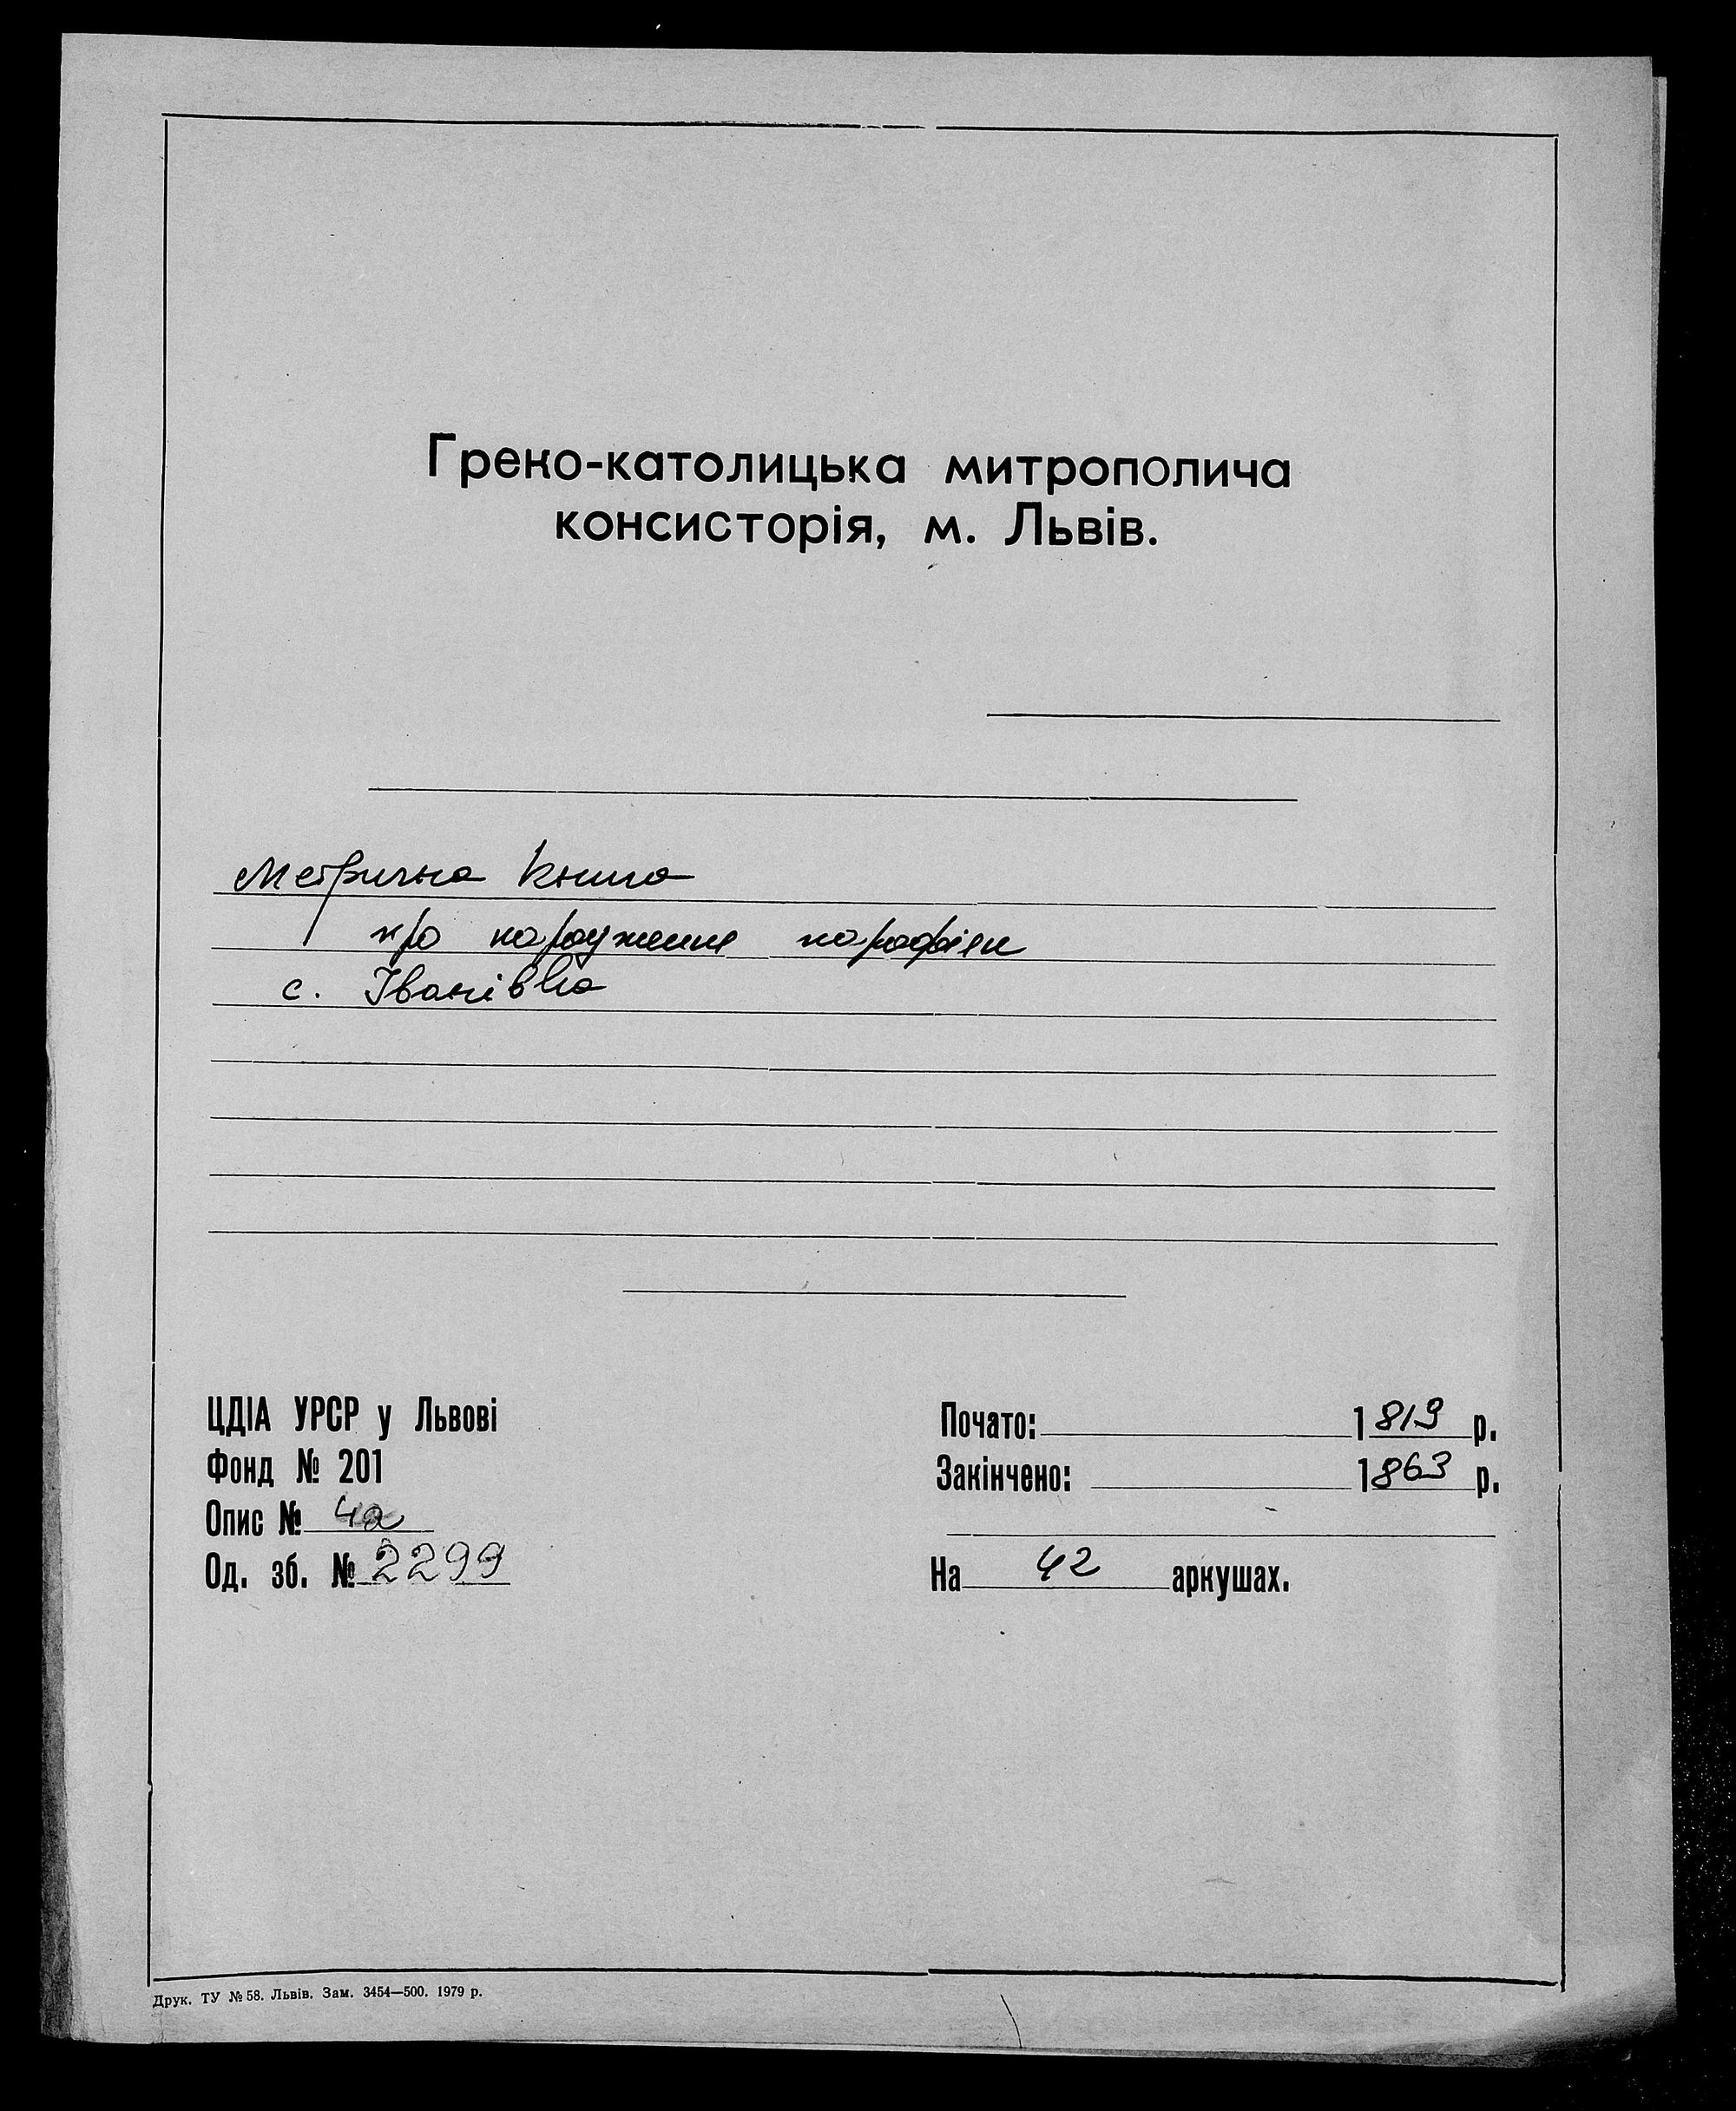 Греко-католицька митрополича
консисторія, м. Львів.
Метрична книга
про народження парафіян
с. Іванівка
ЦДІА УРСР у Львові
Фонд № 201
Опис № 4а
Од. зб. № 2299
Почато: 1819 р.
Закінчено: 1863 р.
На 42 аркушах.
Друк. ТУ № 58. Львів. Зам. 3454—500. 1979 р.